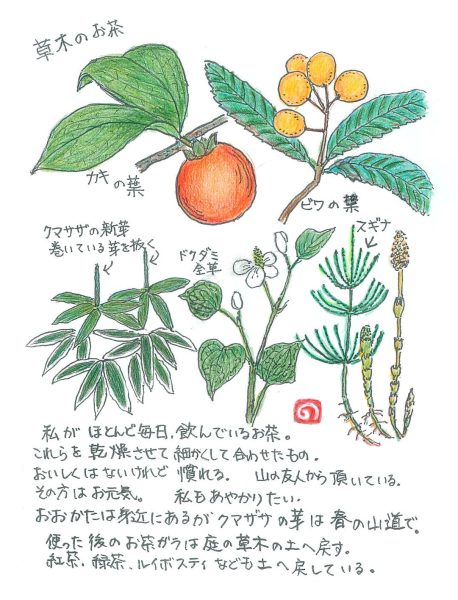 草木のお茶
カキの葉
ビワの葉
クマザサの新芽
巻いている芽を抜く
ドクダミ
全草
スギナ
私が ほとんど毎日、飲んでいるお茶。
これらを乾燥させて細かくして合わせたもの。
おいしくはないけれど 慣れる。 山の友人から頂いている。
その方はお元気。 私もあやかりたい。
おおかたは身近にあるがクマザサの芽は春の山道で。
使った後のお茶ガラは庭の草木の土へ戻す。
紅茶、緑茶、ルイボスティなども土へ戻している。